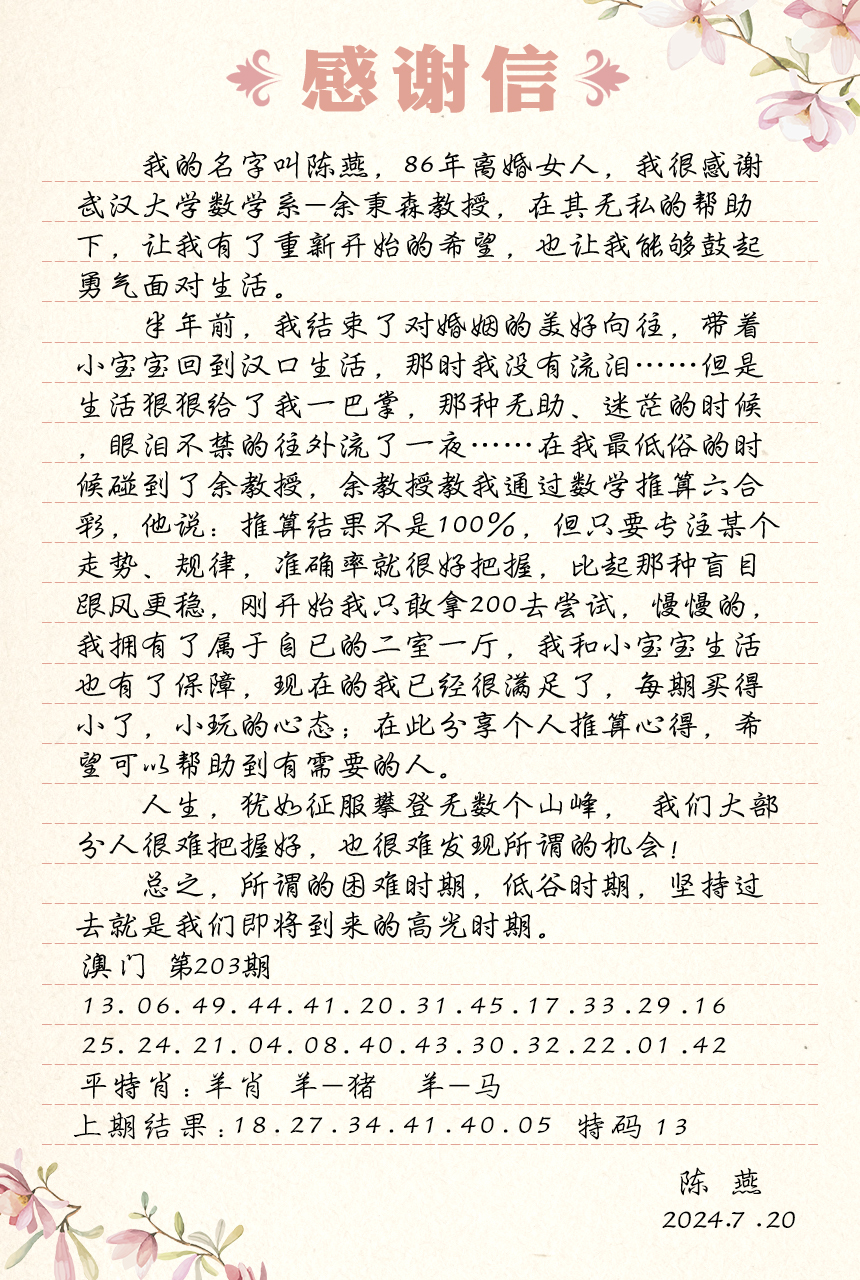 感谢信
我的名字叫陈燕，86年离婚女人，我很感谢
武汉大学数学系—余秉森教授，在其无私的帮助
下，让我有了重新开始的希望，也让我能够鼓起
勇气面对生活。
半年前，我结束了对婚姻的美好向往，带着
小宝宝回到汉口生活，那时我没有流泪……但是
生活狠狠给了我一巴掌，那种无助、迷茫的时候
，眼泪不禁的往外流了一夜……在我最低俗的时
候碰到了余教授，余教授教我通过数学推算六合
彩，他说：推算结果不是100%，但只要专注某个
走势、规律，准确率就很好把握，比起那种盲目
跟风更稳，刚开始我只敢拿200去尝试，慢慢的，
我拥有了属于自已的二室一厅，我和小宝宝生活
也有了保障，现在的我已经很满足了，每期买得
小了，小玩的心态；在此分享个人推算心得，希
望可以帮助到有需要的人。
人生，犹如征服攀登无数个山峰， 我们大部
分人很难把握好，也很难发现所谓的机会！
总之，所谓的困难时期，低谷时期，坚持过
去就是我们即将到来的高光时期。
澳门 第203期
13.06.49.44.41.20.31.45.17.33.29.16
25.24.21.04.08.40.43.30.32.22.01.42
平特肖：羊肖 羊—猪 羊—马
上期结果：18.27.34.41.40.05 特码 13
陈 燕
2024.7.20